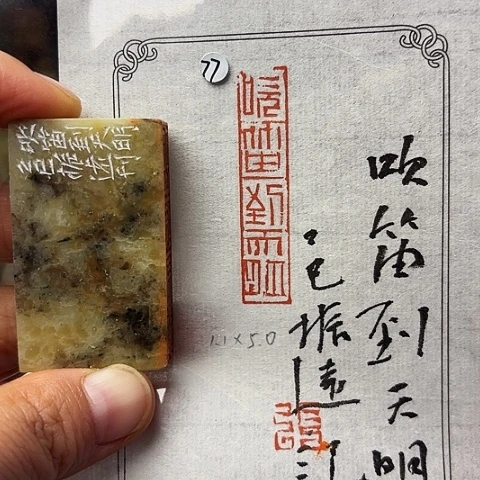 吹笛到天明
乙巳振遠刊
77
吹笛到天明
吹笛到天明
乙巳振遠
1.1×5.0